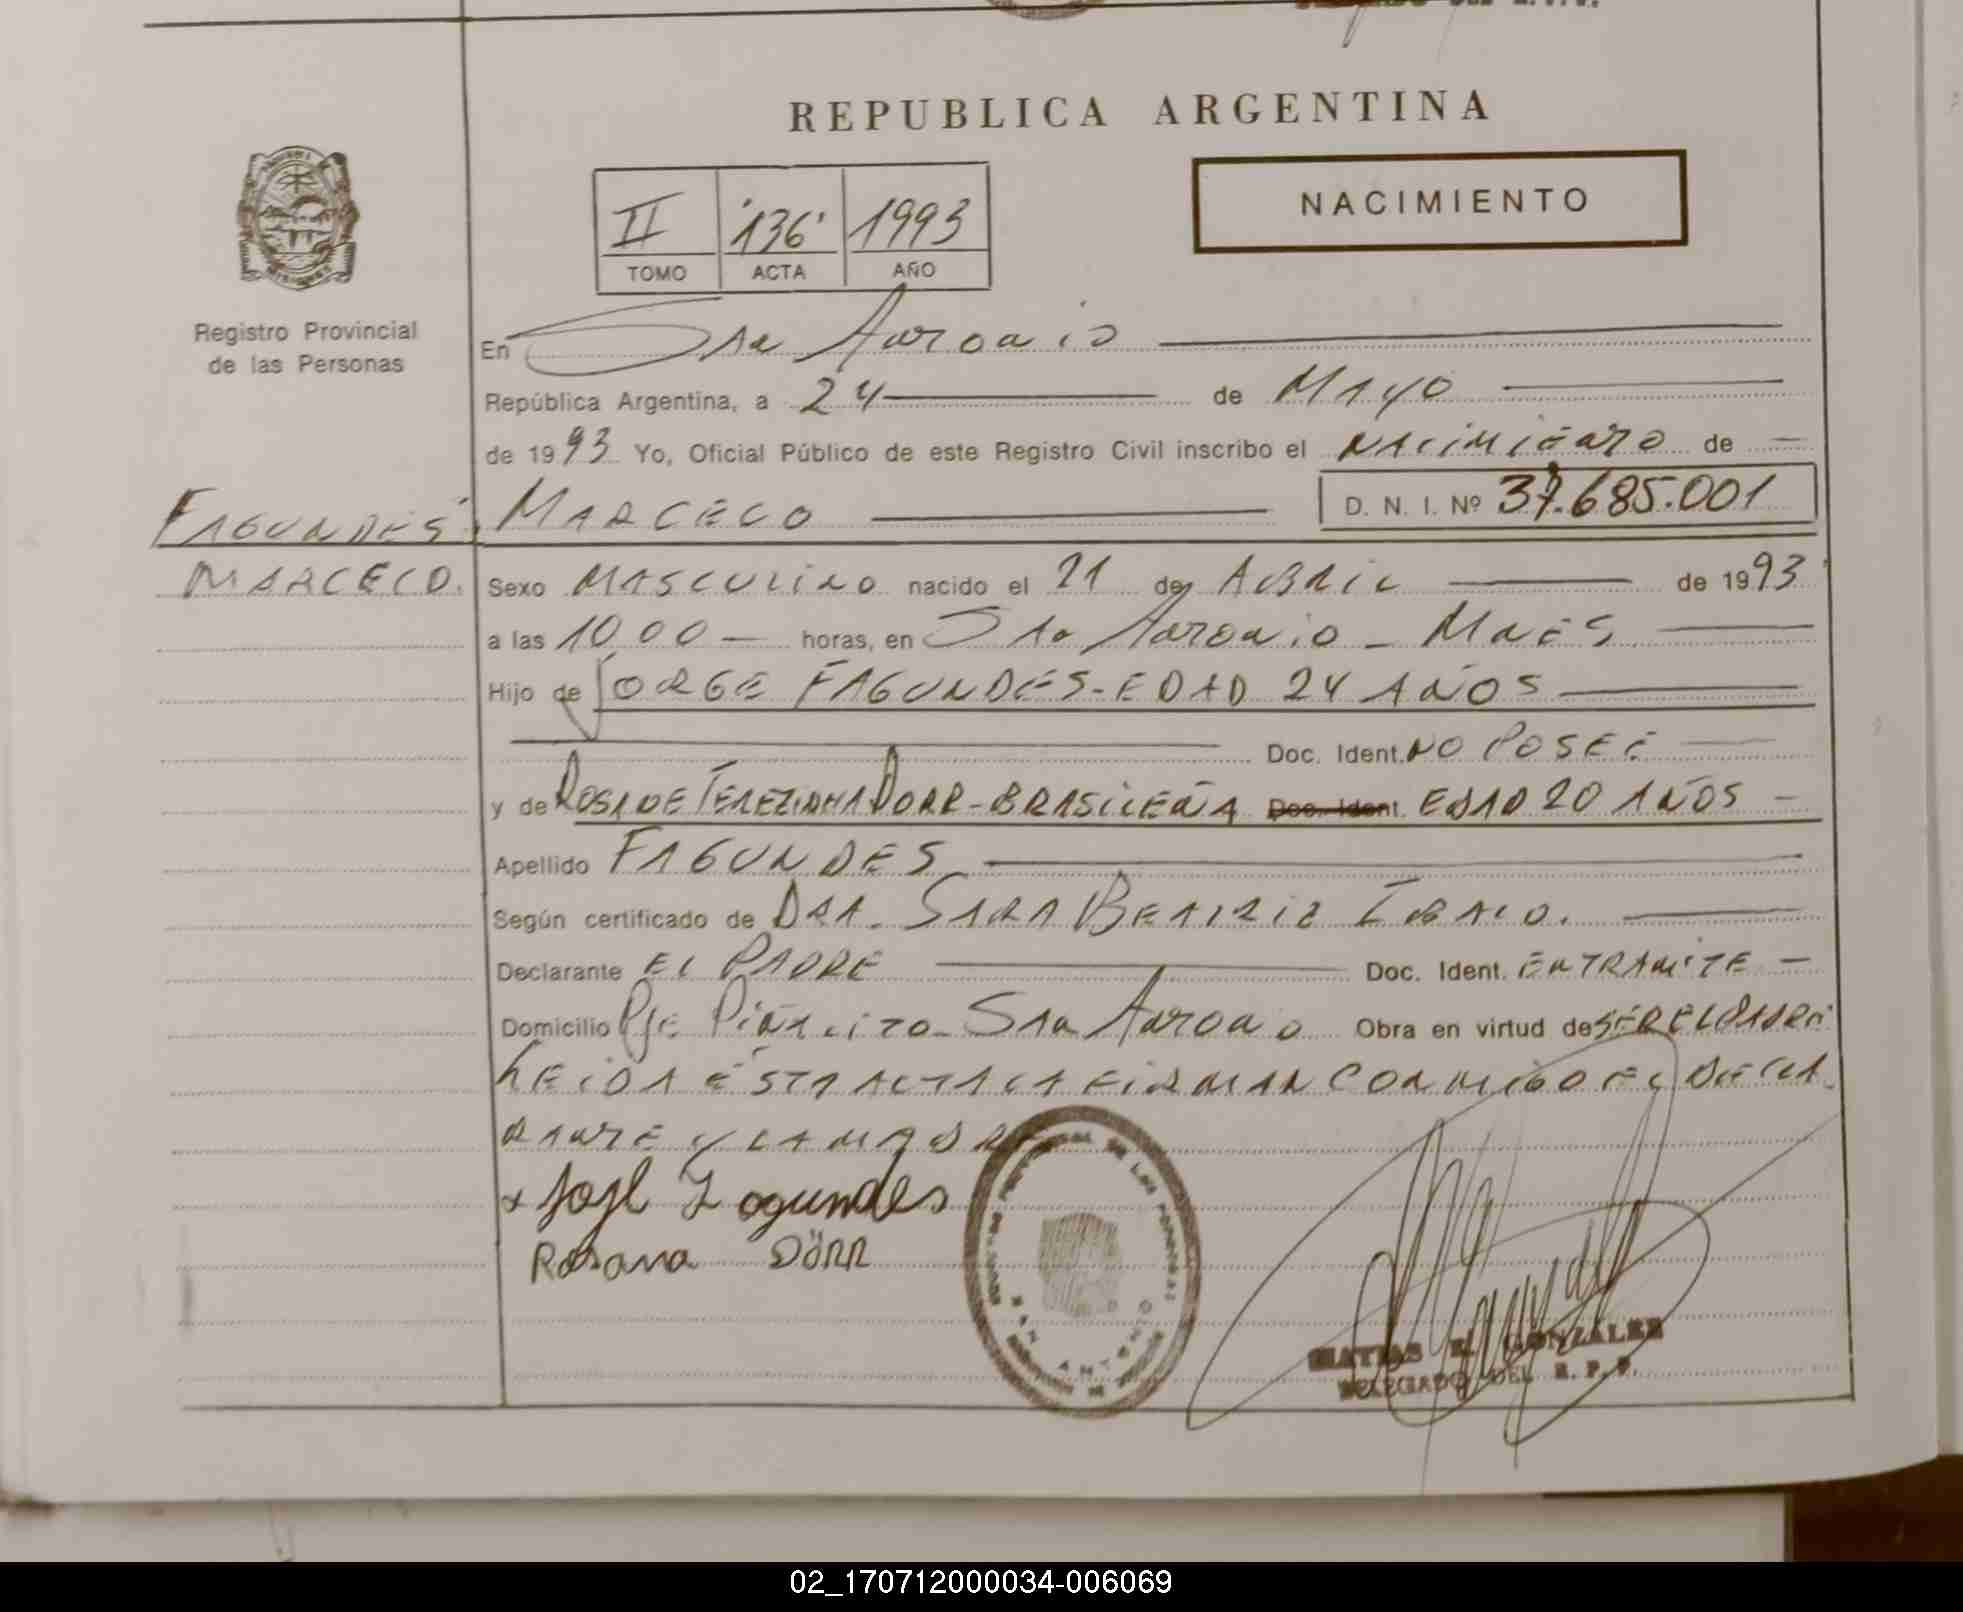 REPUBLICA ARGENTINA
NACIMIENTO
II 136 1993
TOMO ACTA AÑO
Registro Provincial
de las Personas
En San Antonio
República Argentina, a 24 de MAYO
de 1993 Yo, Oficial Público de este Registro Civil inscribo el NACIMIENTO de
FAGUNDES MARCELO D. N. I. Nº 37.685.001
MARCELO. Sexo MASCULINO nacido el 21 de ABRIL de 1993
a las 10 00 horas, en San Antonio - Mnes
Hijo de JORGE FAGUNDES - EDAD 24 AÑOS
Doc. Ident. NO POSEE
y de ROSA DE TEREZINHA DORR - BRASILEÑA Doc. Ident. EDAD 20 AÑOS
Apellido FAGUNDES
Según certificado de DRA. SARA BEATRIZ
Declarante EL PADRE Doc. Ident. EN TRAMITE
Domicilio Pje San Antonio Obra en virtud de SER EL PADRE
LEIDA ESTA ACTA LA FIRMAN CONMIGO EL DECLA
RANTE Y LA MADRE
x Fagundes
Rosana Dörr
SAN ANTONIO
MATIAS R. GONZALEZ
DELEGADO DEL R. P. P.
02_170712000034-006069